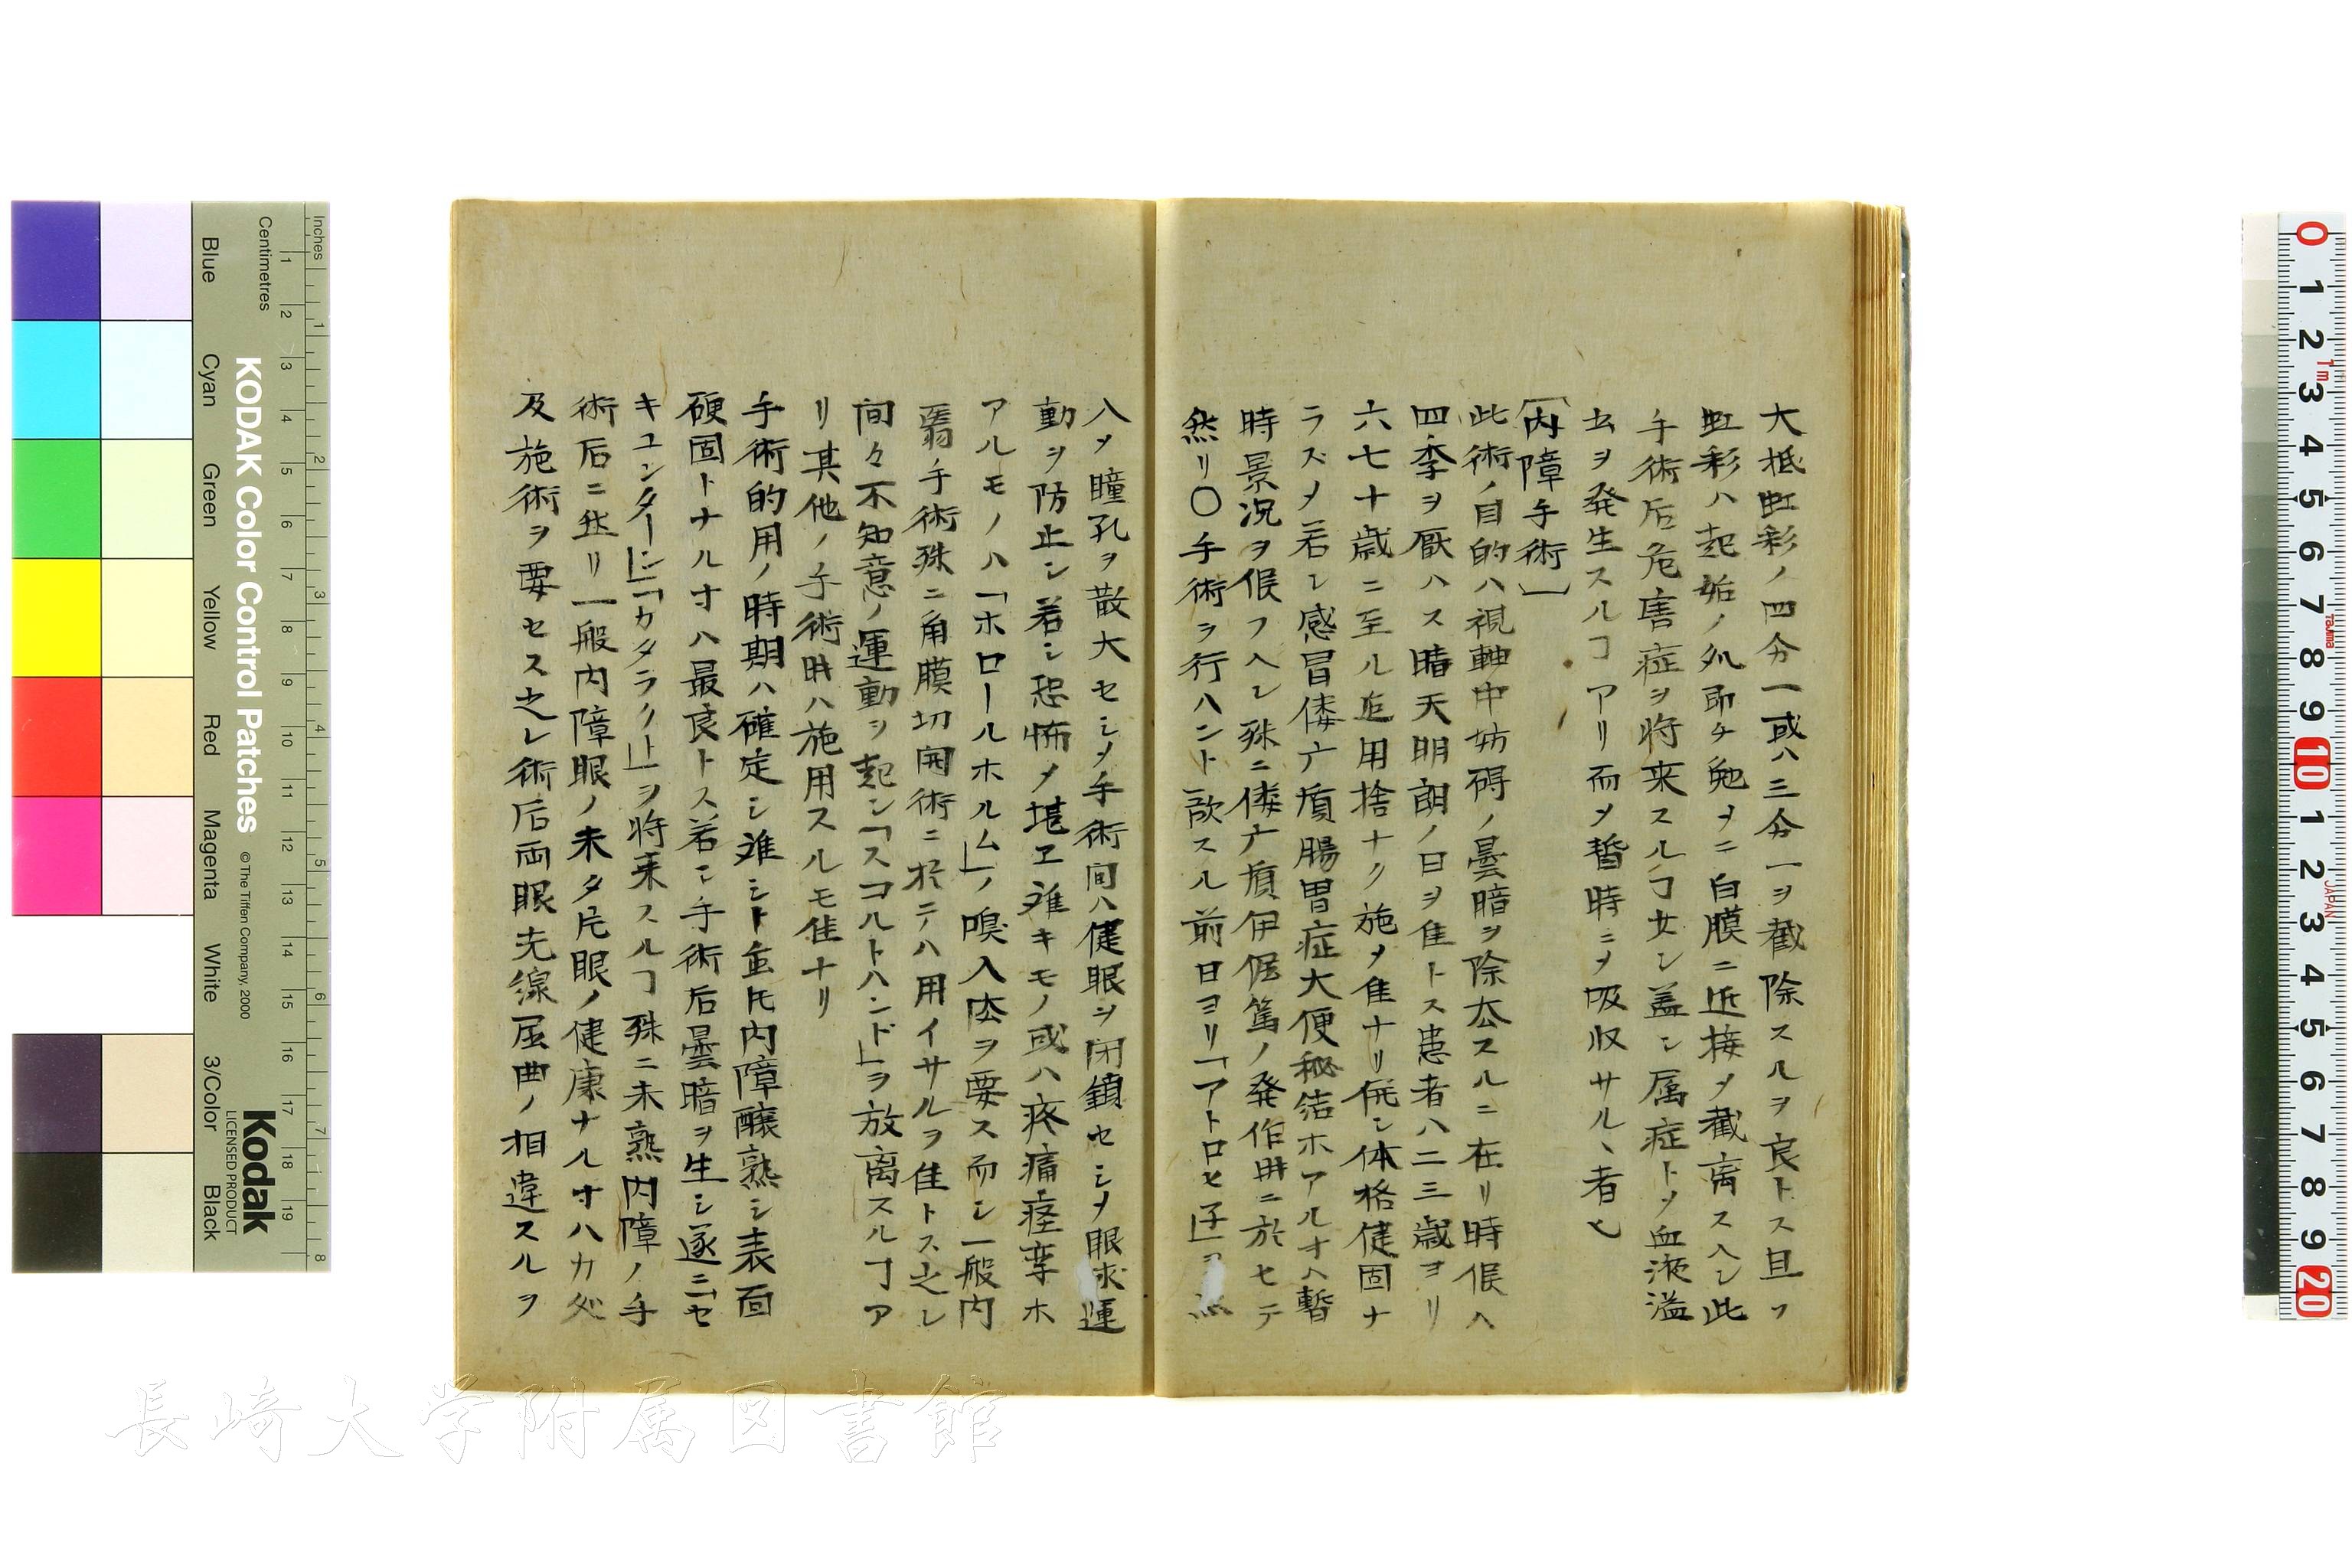 大抵虹彩ノ四分一或ハ三分一ヲ截除スルヲ良トス且ツ
虹彩ハ起始ノ処即チ勉メテ白膜ニ近接〆截离スヘシ此
手術后危害症ヲ将来スルヿ少シ盖シ属症ト〆血液溢
出ヲ発生スルヿアリ而〆暫時ニ〆吸収サルヽ者也
〔内障手術〕
此術ノ目的ハ視軸中妨碍ノ曇暗ヲ除去スルニ在リ時候ハ
四季ヲ厭ハス晴天明朗ノ日ヲ佳トス患者ハ二三歳ヨリ
六七十歳ニ至ル迄用捨ナク施〆佳ナリ併シ体格健固ナ
ラズ〆若シ感冒僂麻質腸胃症大便秘結ホアルオハ暫
時景況ヲ候フヘシ殊ニ僂麻質伊倔篤ノ発作時ニ於セテ
然リ〇手術ヲ行ハント欲スル前日ヨリ「アトロヒ子」ヲ点
八〆瞳孔ヲ散大セシ〆手術間ハ健眼ヲ閉鎖セシ〆眼球運
動ヲ防止シ若シ恐怖〆堪ヱ難キモノ或ハ疼痛痙挛ホ
アルモノハ「ホロールホルム」ノ嗅入法ヲ要ス而シ一般内
翳手術殊ニ角膜切開術ニ於テハ用イサルヲ佳トス之レ
間々不知意ノ運動ヲ起シ「スコルトハンド」ヲ放离スルヿア
リ其他ノ手術時ハ施用スルモ佳ナリ
手術的用ノ時期ハ確定シ難シト虽𪜈内障醸熟シ表面
硬固トナルオハ最良トス若シ手術后曇暗ヲ生シ遂ニ「セ
キユンターレ」「カタラクト」ヲ将来スルヿ殊ニ未熟内障ノ手
術后ニ在リ一般内障眼ノ未タ片眼ノ健康ナルオハ力メ
及施術ヲ要セス之レ術后両眼光線屈曲ノ相違スルヲ
KODAK Color Control Patches
© The Tiffen Company, 2000
Kodak
LICENSED PRODUCT
Inches
Centimetres
Blue
Cyan
Green
Yellow
Red
Magenta
White
3/Color
Black
JAPAN
長崎大学附属図書館